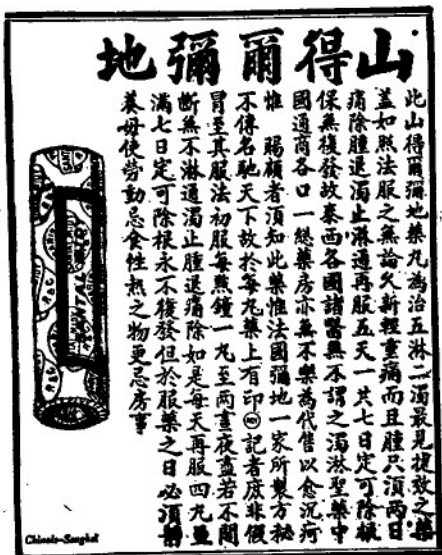 山得爾彌地
此山得爾彌地藥丸為治五淋二濁最見捷效之藥
蓋如照法服之無論久新輕重痛而且腫只須兩日
痛除腫退濁止淋通再服五天一共七日定可除根
保無復發故泰西各國諸醫無不謂之濁淋聖藥中
國通商各口一總藥房亦無不樂為代售以愈沉疴
惟 賜顧者須知此藥惟法國彌地一家所製方秘
不傳名馳天下故於每丸藥上有印記者庶非假
冒至其服法初服每點鐘一丸至兩晝夜盡若不間
斷無不淋通濁止腫退痛除如是每天再服四丸盡
滿七日定可除根永不復發但於服藥之日必須靜
養毋使勞動忌食性熱之物更忌房事
SANTAL MIDY
Chinois-Sanghai